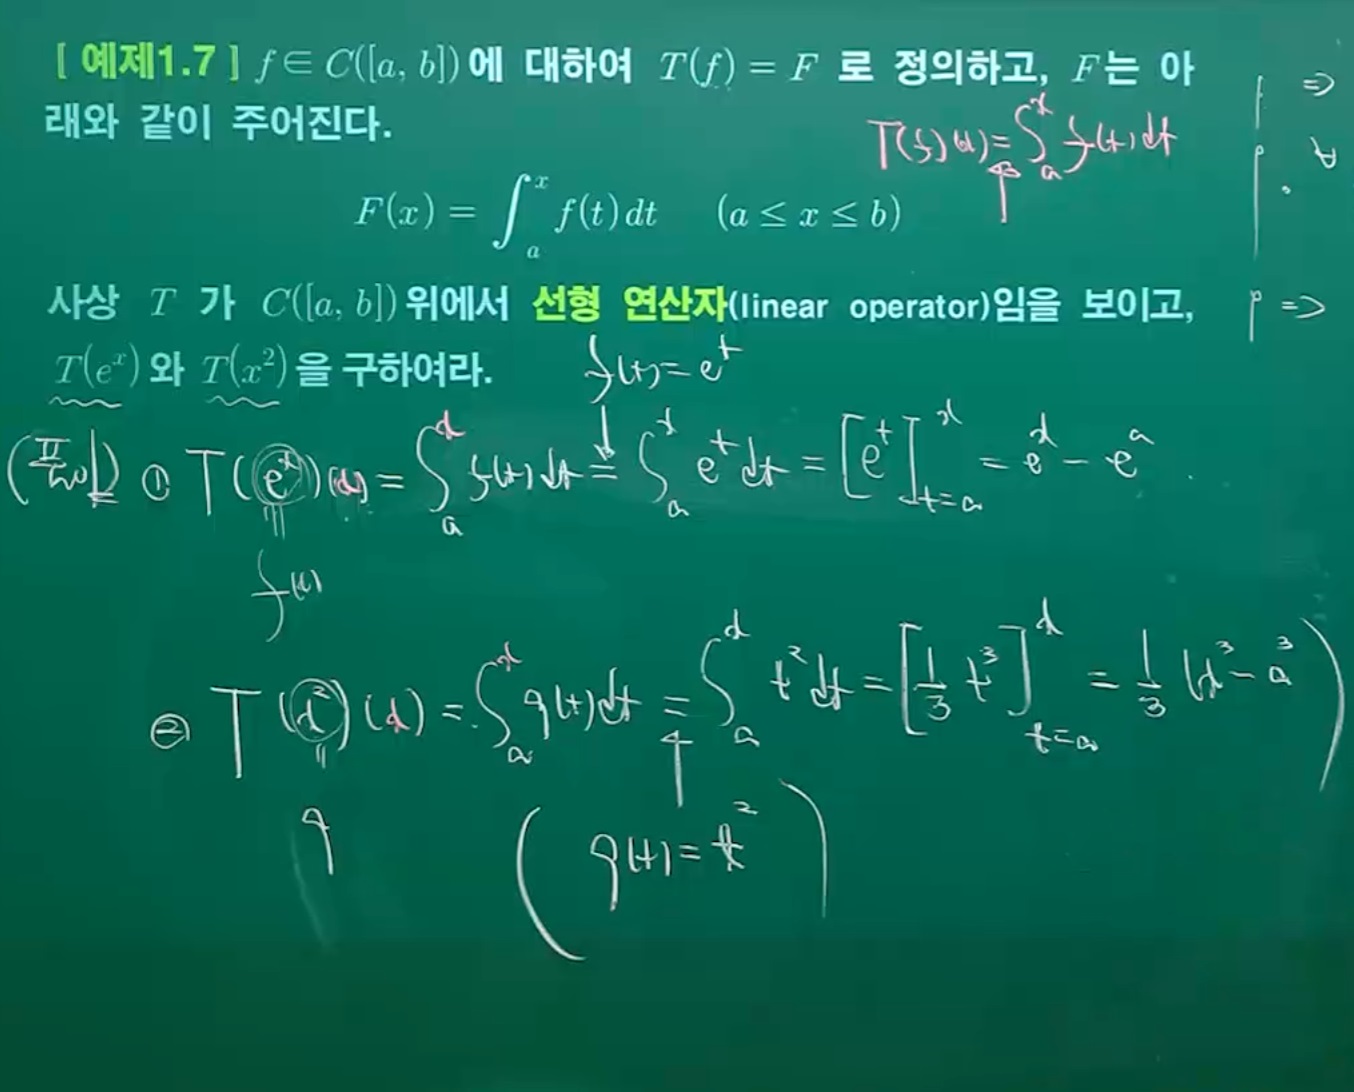 [ 예제1.7 ] f ∈ C([a, b])에 대하여 T(f) = F 로 정의하고, F는 아
래와 같이 주어진다.
T(f)(x) = ∫_a^x f(t)dt
F(x) = ∫_a^x f(t)dt (a ≤ x ≤ b)
사상 T 가 C([a, b])위에서 선형 연산자(linear operator)임을 보이고,
T(e^x)와 T(x^2)을 구하여라.
f(t) = e^t
(풀이) ① T(e^x)(x) = ∫_a^x f(t)dt = ∫_a^x e^t dt = [e^t]_{t=a}^x = e^x - e^a
f(x)
② T(x^2)(x) = ∫_a^x g(t)dt = ∫_a^x t^2 dt = [1/3 t^3]_{t=a}^x = 1/3 (x^3 - a^3)
g
(g(t) = t^2)